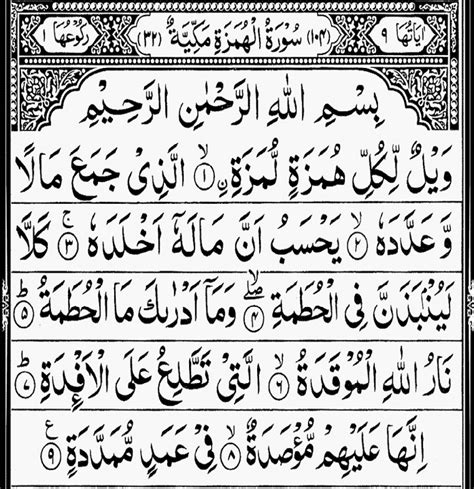 اٰيَاتُهَا ٩ (١٠٤) سُوْرَةُ الْهُمَزَةِ مَكِّيَّةٌ (٣٢) رُكُوْعُهَا ١
بِسْمِ اللهِ الرَّحْمٰنِ الرَّحِيْمِ
وَيْلٌ لِّكُلِّ هُمَزَةٍ لُّمَزَةِ ۙ﴿١﴾ ۨ الَّذِىْ جَمَعَ مَالًا
وَّعَدَّدَهٗ ۙ﴿٢﴾ يَحْسَبُ اَنَّ مَالَهٗۤ اَخْلَدَهٗ ۚ﴿٣﴾ كَلَّا
لَيُنْۢبَذَنَّ فِى الْحُطَمَةِ ۖ﴿٤﴾ وَمَاۤ اَدْرٰىكَ مَا الْحُطَمَةُ ؕ﴿٥﴾
نَارُ اللهِ الْمُوْقَدَةُ ۙ﴿٦﴾ الَّتِىْ تَطَّلِعُ عَلَى الْاَفْـِٕدَةِ ؕ﴿٧﴾
اِنَّهَا عَلَيْهِمْ مُّؤْصَدَةٌ ۙ﴿٨﴾ فِىْ عَمَدٍ مُّمَدَّدَةٍ ﴿٩﴾ ع